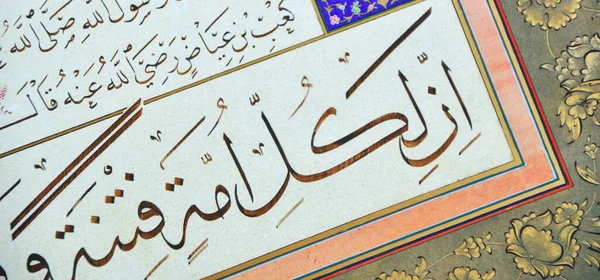 رَسُولُ اللهِ صَلَّى اللهُ
كَعْبِ بْنِ عِيَاضٍ رَضِيَ اللهُ عَنْهُ قَالَ
اِنَّ لِكُلِّ اُمَّةٍ فِتْنَةً